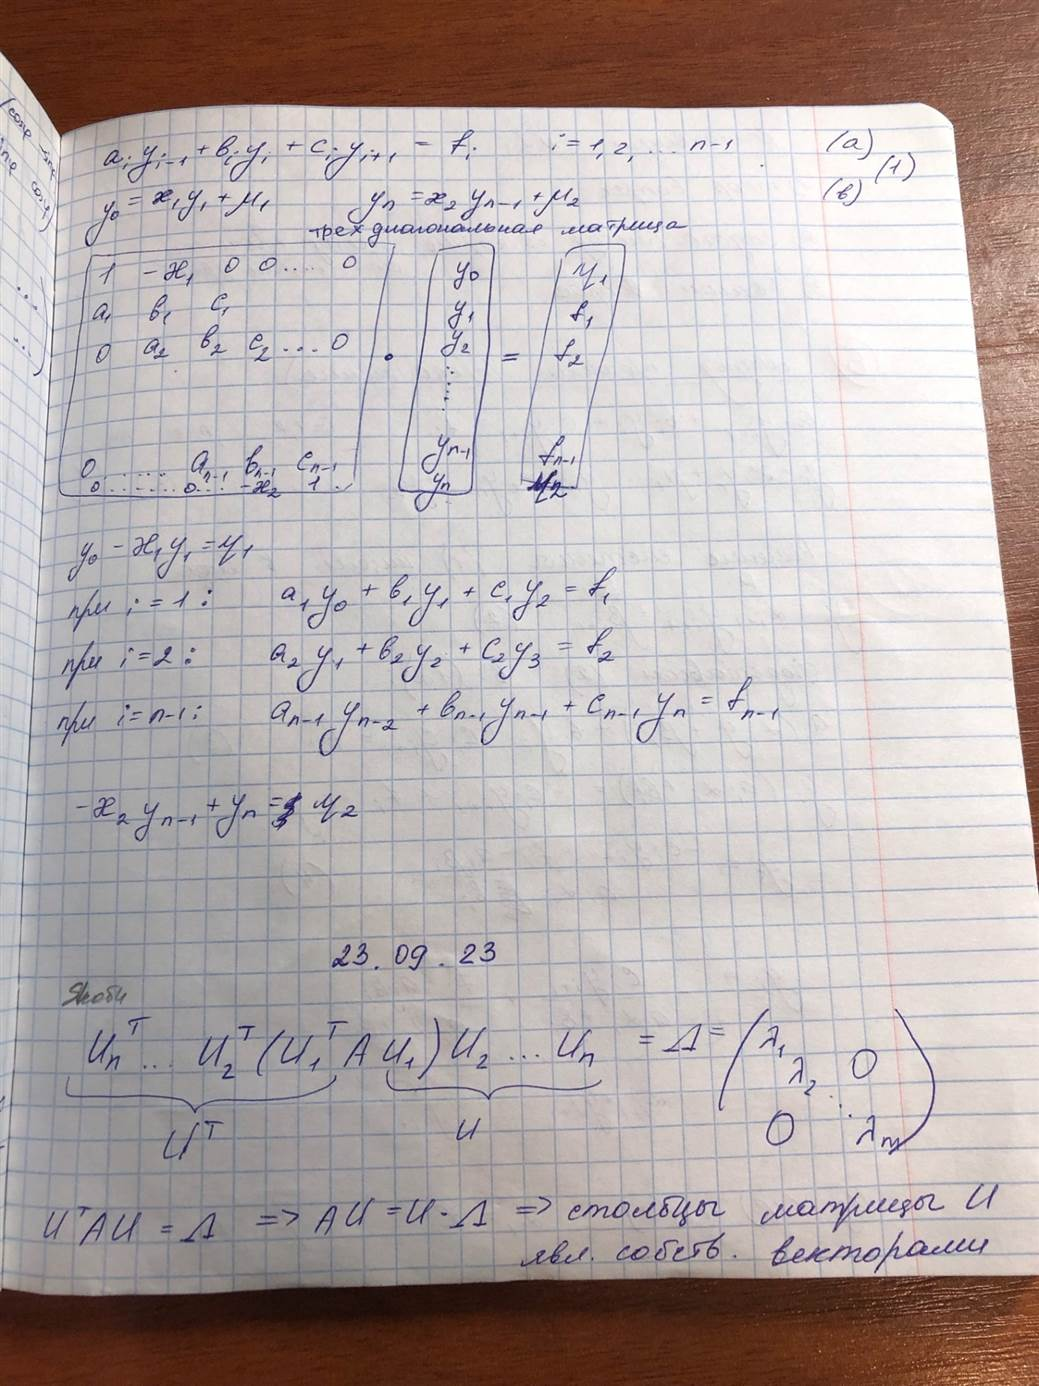 aᵢyᵢ₋₁ + вᵢyᵢ + cᵢyᵢ₊₁ = fᵢ i = 1, 2, ... n-1 (a)
(1)
y₀ = ϰ₁y₁ + μ₁ yₙ = ϰ₂yₙ₋₁ + μ₂ (в)
трехдиагональная матрица
1 -ϰ₁ 0 0 .... 0 y₀ μ₁
a₁ в₁ c₁ y₁ f₁
0 a₂ в₂ c₂ ... 0 · y₂ = f₂
0 ..... aₙ₋₁ вₙ₋₁ cₙ₋₁ yₙ₋₁ fₙ₋₁
0 ........ 0 ... -ϰ₂ 1 yₙ μ₂
y₀ - ϰ₁y₁ = μ₁
при i = 1 : a₁y₀ + в₁y₁ + c₁y₂ = f₁
при i = 2 : a₂y₁ + в₂y₂ + c₂y₃ = f₂
при i = n-1 : aₙ₋₁yₙ₋₂ + вₙ₋₁yₙ₋₁ + cₙ₋₁yₙ = fₙ₋₁
-ϰ₂yₙ₋₁ + yₙ = μ₂
23.09.23
Якоби
Uₙᵀ ... U₂ᵀ (U₁ᵀ A U₁) U₂ ... Uₙ = Λ = (λ₁ λ₂ 0 ... 0 λₙ)
Uᵀ U
UᵀAU = Λ => AU = U·Λ => столбцы матрицы U
явл. собств. векторами